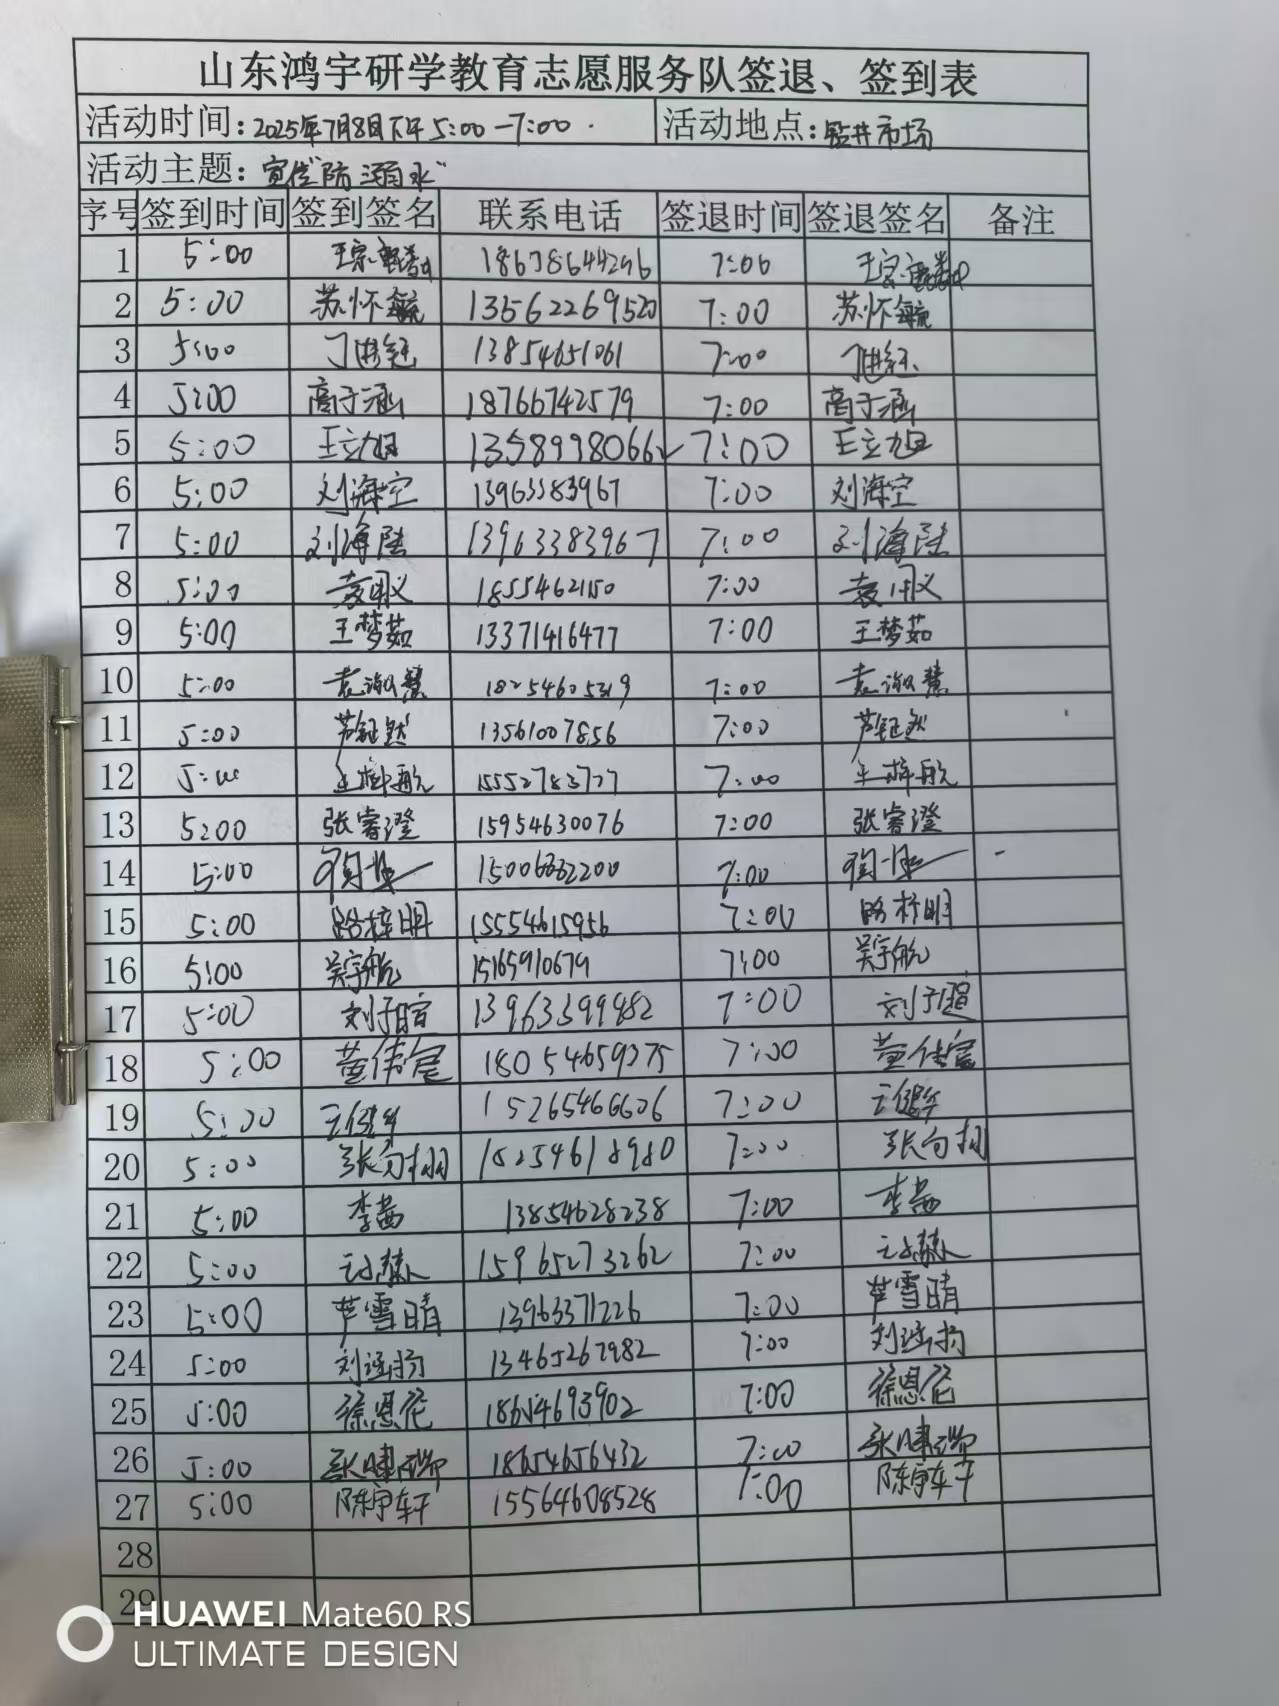 山东鸿宇研学教育志愿服务队签退、签到表
活动时间：2025年7月8日下午5:00-7:00. 活动地点：钻井市场
活动主题：宣传"防溺水"
序号 签到时间 签到签名 联系电话 签退时间 签退签名 备注
1 5:00 18678644296 7:00
2 5:00 苏怀毓 13562269520 7:00 苏怀毓
3 5:00 13854651061 7:00
4 5:00 高于涵 18766742579 7:00 高于涵
5 5:00 王立旭 13589980662 7:00 王立旭
6 5:00 刘海空 13963383967 7:00 刘海空
7 5:00 刘海陆 13963383967 7:00 刘海陆
8 5:00 1855462150 7:00
9 5:00 王梦茹 13371416477 7:00 王梦茹
10 5:00 袁淑慧 18254605319 7:00 袁淑慧
11 5:00 芦钰然 13561007856 7:00 芦钰然
12 5:00 王梓航 15552783777 7:00 王梓航
13 5:00 张睿澄 15954630076 7:00 张睿澄
14 5:00 7:00
15 5:00 路梓明 15554615956 7:00 路梓明
16 5:00 吴宇航 15165910679 7:00 吴宇航
17 5:00 13963399482 7:00
18 5:00 董伟宸 18054659375 7:00 董伟宸
19 5:00 15265466606 7:00
20 5:00 18254618980 7:00
21 5:00 李茜 13854628238 7:00 李茜
22 5:00 15965273262 7:00
23 5:00 芦雪晴 13963371226 7:00 芦雪晴
24 5:00 13465267982 7:00
25 5:00 徐恩佗 18654693902 7:00 徐恩佗
26 5:00 张啸瑞 18654656432 7:00 张啸瑞
27 5:00 陈宇轩 15564608528 7:00 陈宇轩
28
29
HUAWEI Mate60 RS
ULTIMATE DESIGN